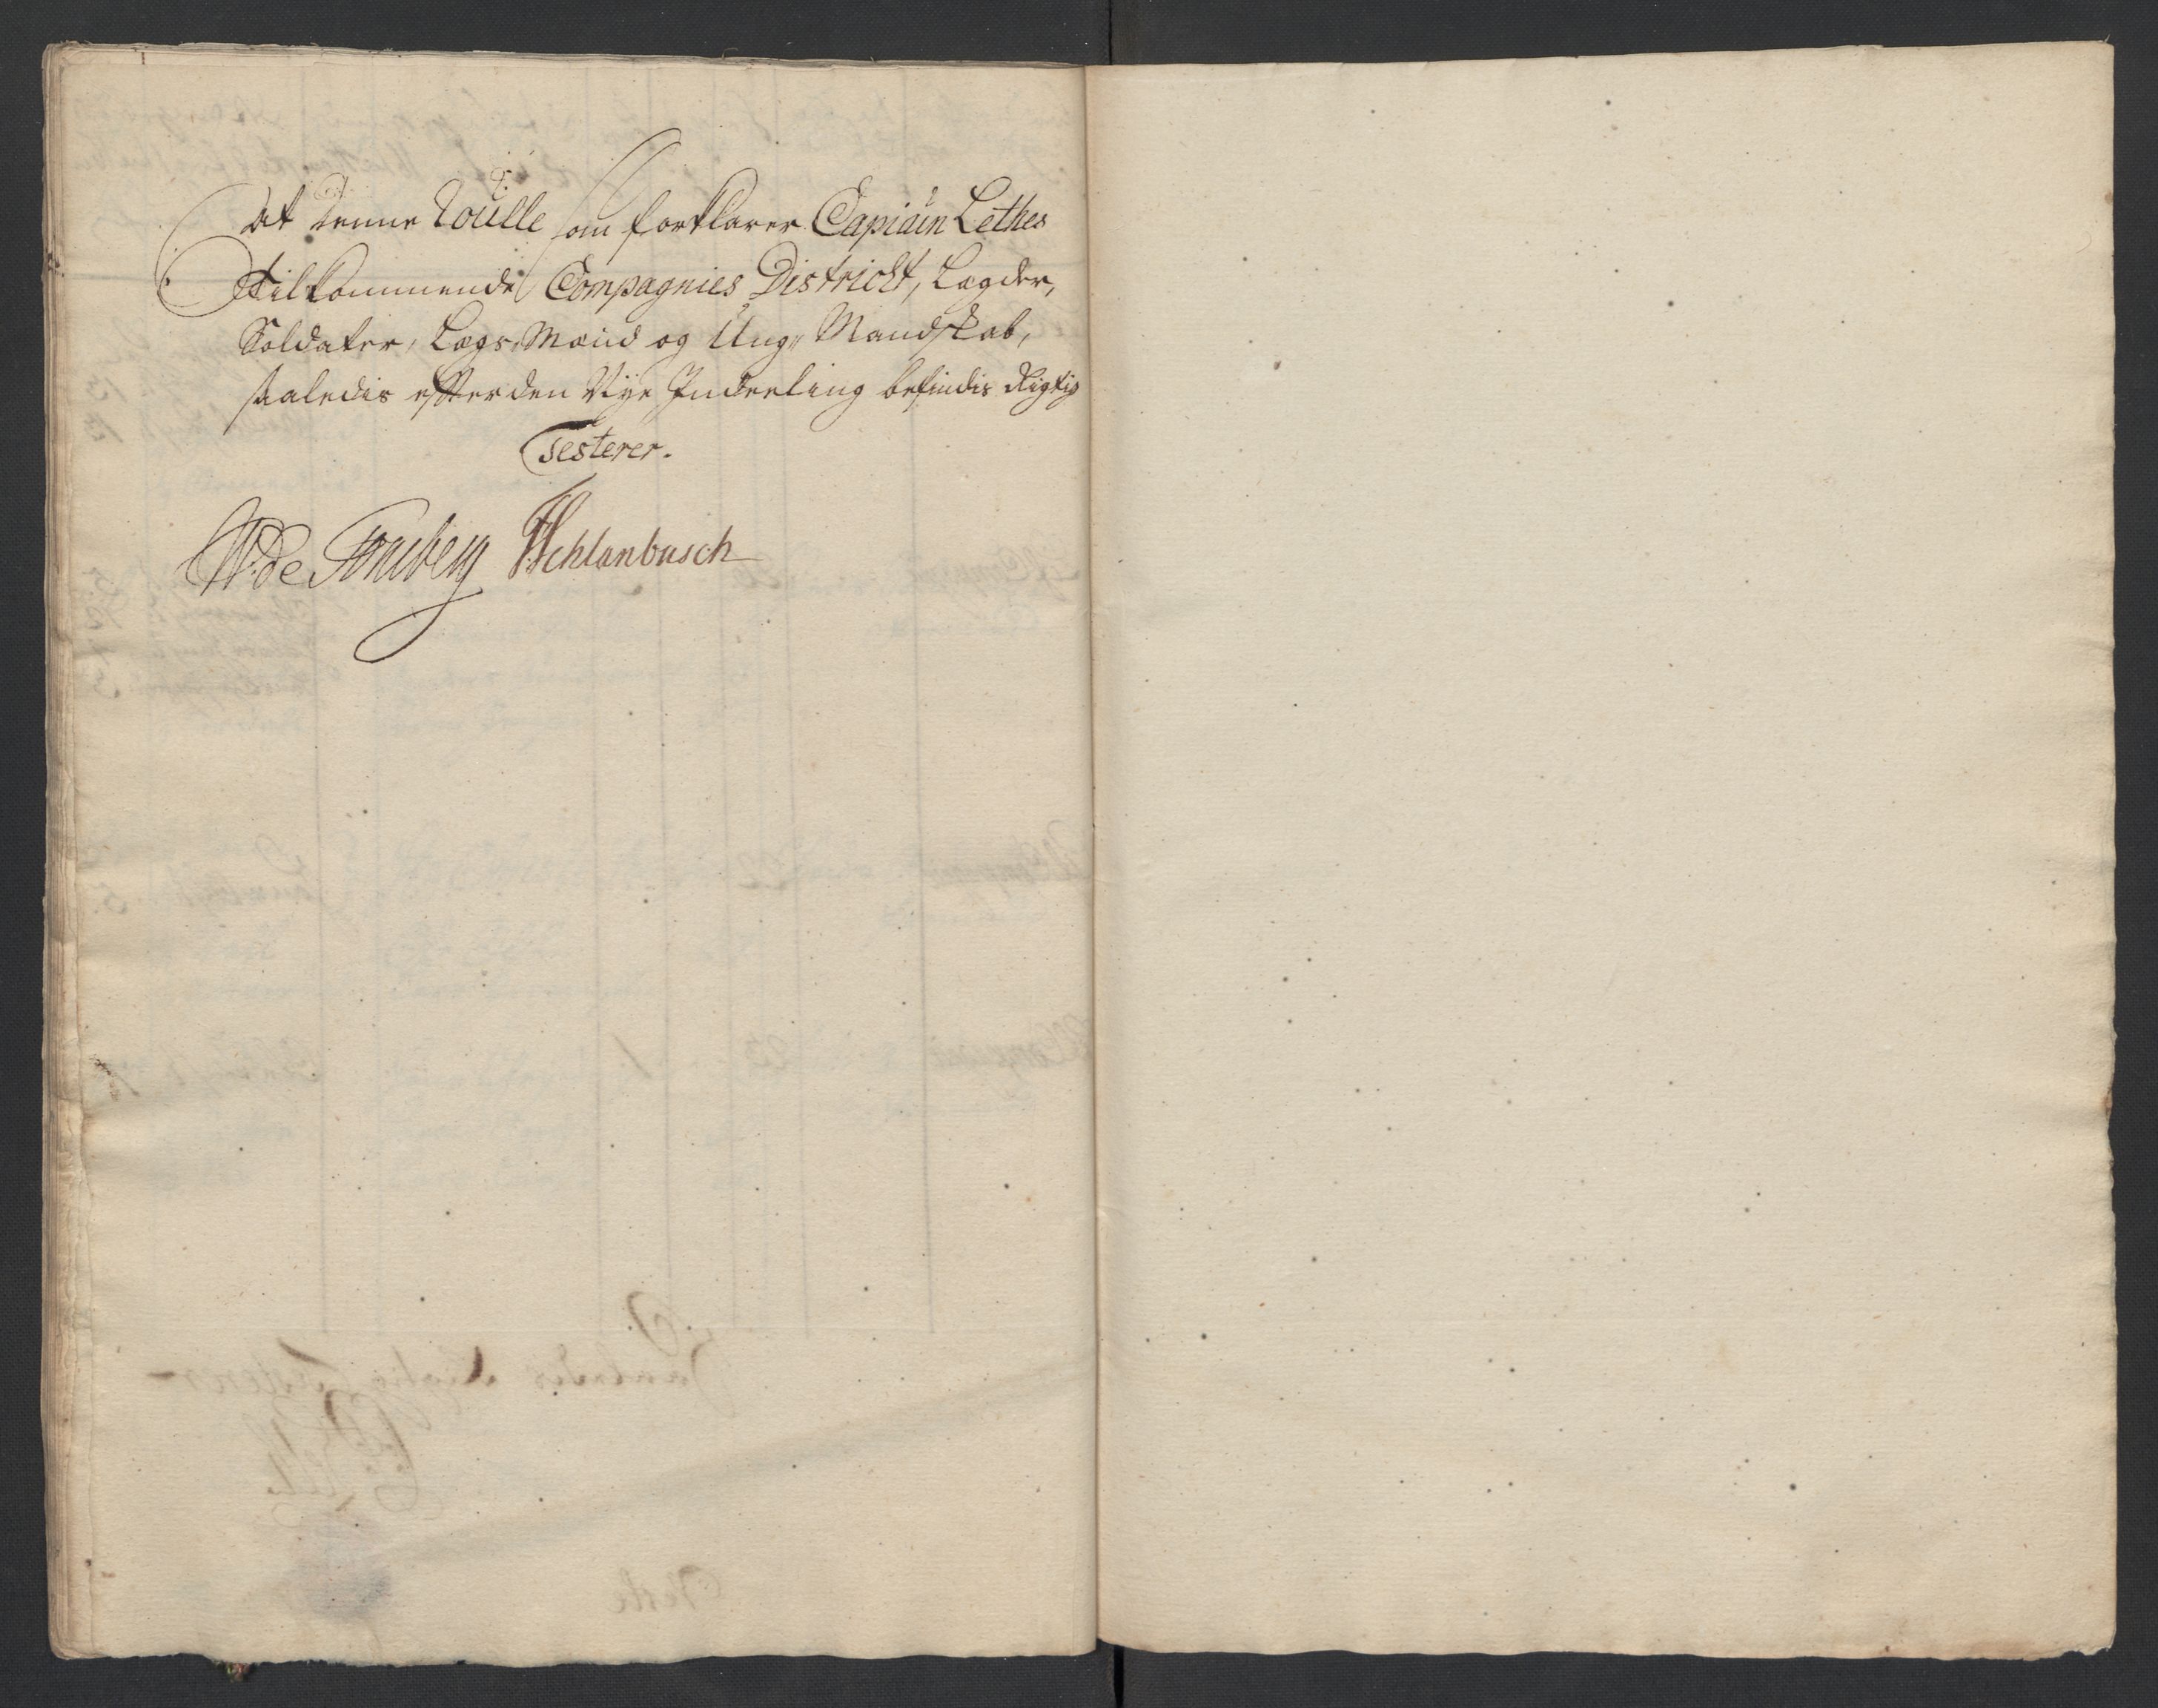 At denne Roulle som forklarer Capitain Lethes
tilkommende Compagnies District, Lægder,
Soldater, Lægs-Mænd og Ung Mandskab,
saaledis efter den Nye Inddeeling befindis Rigtig
Testerer.
W: de Tonsberg H Schlanbusch